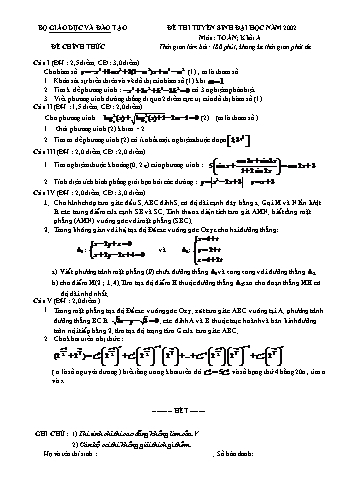 BỘ GIÁO DỤC VÀ ĐÀO TẠO ĐỀ THI TUYỂN SINH ĐẠI HỌC NĂM 2002
Môn: TOÁN; Khối A
ĐỀ CHÍNH THỨC Thời gian làm bài: 180 phút, không kể thời gian phát đề
Câu I (ĐH : 2,5 điểm, CĐ : 3,0 điểm)
Cho hàm số y = -x³ + 3mx² + 3(1 - m²)x + m³ - m² (1) , m là tham số
1. Khảo sát sự biến thiên và vẽ đồ thị của hàm số (1) khi m = 1.
2. Tìm k để phương trình : -x³ + 3x² + k³ - 3k² = 0 có 3 nghiệm phân biệt.
3. Viết phương trình đường thẳng đi qua 2 điểm cực trị của đồ thị hàm số (1)
Câu II (ĐH : 1,5 điểm, CĐ : 2,0 điểm)
Cho phương trình (2) (m là tham số)
1. Giải phương trình (2) khi m = 2
2. Tìm m để phương trình (2) có ít nhất một nghiệm thuộc đoạn
Câu III (ĐH : 2,0 điểm, CĐ : 2,0 điểm)
1. Tìm nghiệm thuộc khoảng (0, 2π) của phương trình : 5(sin x + (cos 3x + sin 3x)/(1 + 2 sin 2x)) = cos 2x + 3
2. Tính diện tích hình phẳng giới hạn bởi các đường : y = |x² - 4x + 3|, y = x + 3
Câu IV (ĐH : 2,0 điểm, CĐ : 3,0 điểm)
1. Cho hình chóp tam giác đều S.ABC đỉnh S, có độ dài cạnh đáy bằng a. Gọi M và N lần lượt
là các trung điểm của cạnh SB và SC. Tính theo a diện tích tam giác AMN, biết rằng mặt
phẳng (AMN) vuông góc với mặt phẳng (SBC).
2. Trong không gian với hệ tọa độ Đề các vuông góc Oxyz cho hai đường thẳng:
và
a) Viết phương trình mặt phẳng (P) chứa đường thẳng Δ₁ và song song với đường thẳng Δ₂.
b) cho điểm M(2 ; 1; 4). Tìm tọa độ điểm H thuộc đường thẳng Δ₂ sao cho đoạn thẳng MH có
độ dài nhỏ nhất.
Câu V (ĐH : 2,0 điểm)
1. Trong mặt phẳng tọa độ Đề các vuông góc Oxy, xét tam giác ABC vuông tại A, phương trình
đường thẳng BC là √3x - y - √3 = 0, các đỉnh A và B thuộc trục hoành và bán kính đường
tròn nội tiếp bằng 2. Tìm tọa độ trọng tâm G của tam giác ABC.
2. Cho khai triển nhị thức:
(n là số nguyên dương) biết rằng trong khai triển đó và số hạng thứ 4 bằng 20n, tìm n
và x
-------- HẾT --------
GHI CHÚ : 1) Thí sinh chỉ thi cao đẳng không làm câu V
2) Cán bộ coi thi không giải thích gì thêm.
Họ và tên thí sinh : , Số báo danh: